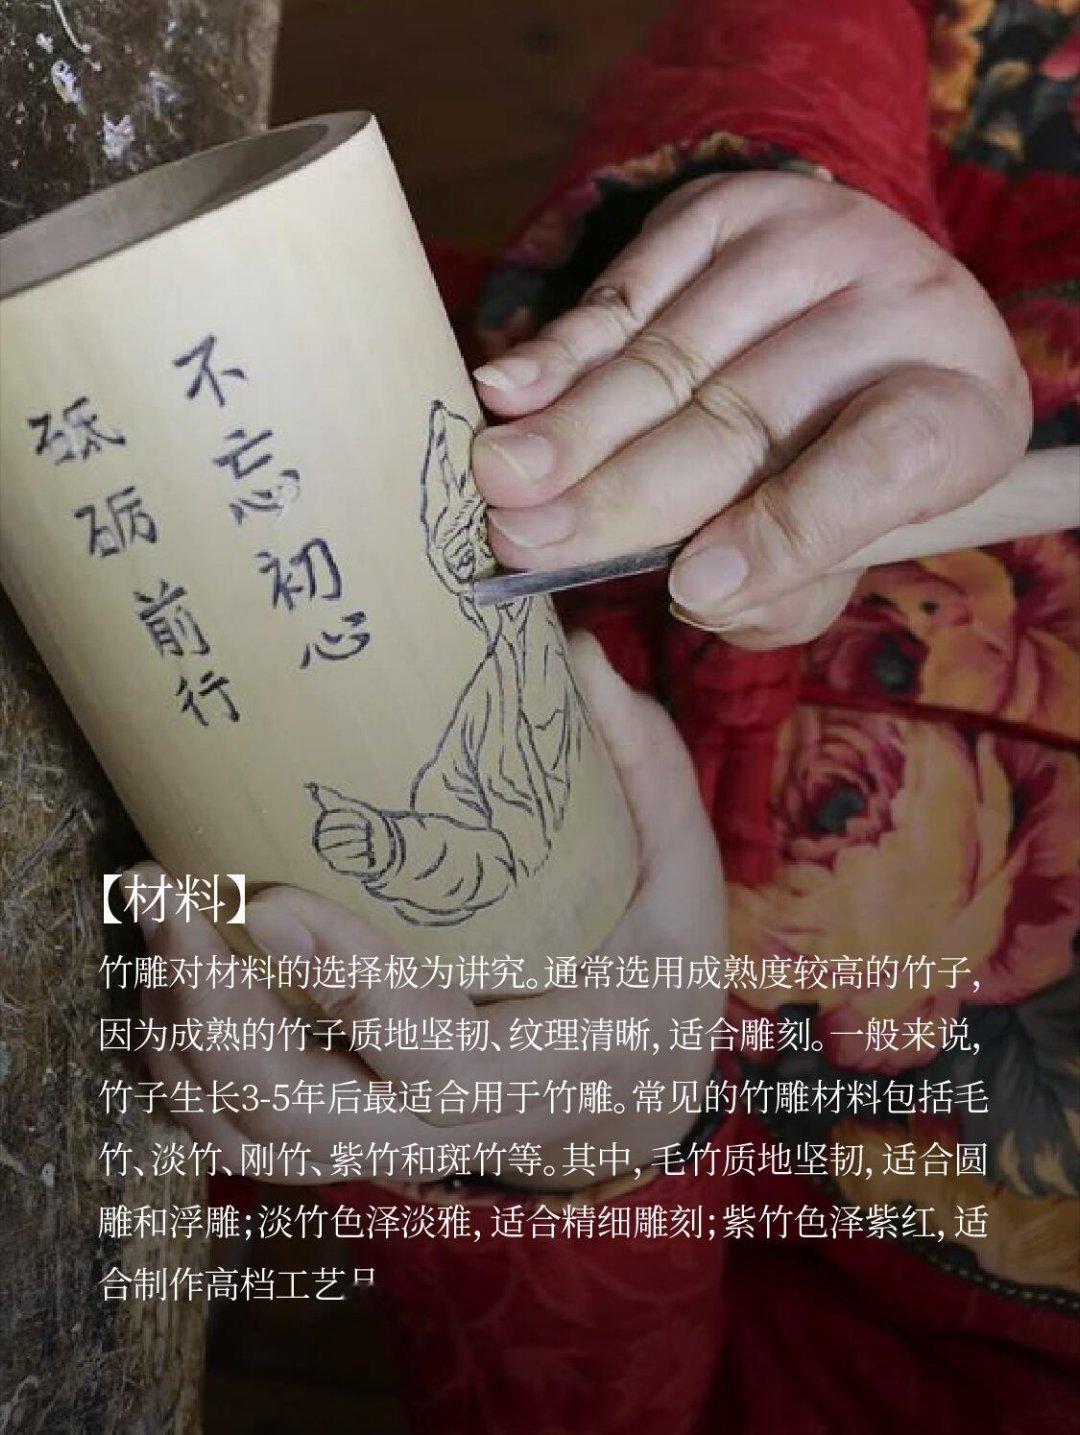 不忘初心
砥砺前行
【材料】
竹雕对材料的选择极为讲究。通常选用成熟度较高的竹子，
因为成熟的竹子质地坚韧、纹理清晰，适合雕刻。一般来说，
竹子生长3-5年后最适合用于竹雕。常见的竹雕材料包括毛
竹、淡竹、刚竹、紫竹和斑竹等。其中，毛竹质地坚韧，适合圆
雕和浮雕；淡竹色泽淡雅，适合精细雕刻；紫竹色泽紫红，适
合制作高档工艺